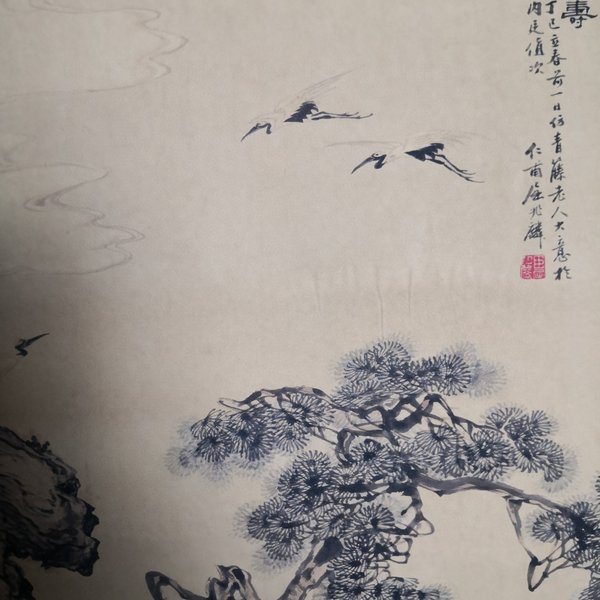 壽
丁巳立春前一日仿青藤老人大意於
内廷值次
仁甫屈兆麟